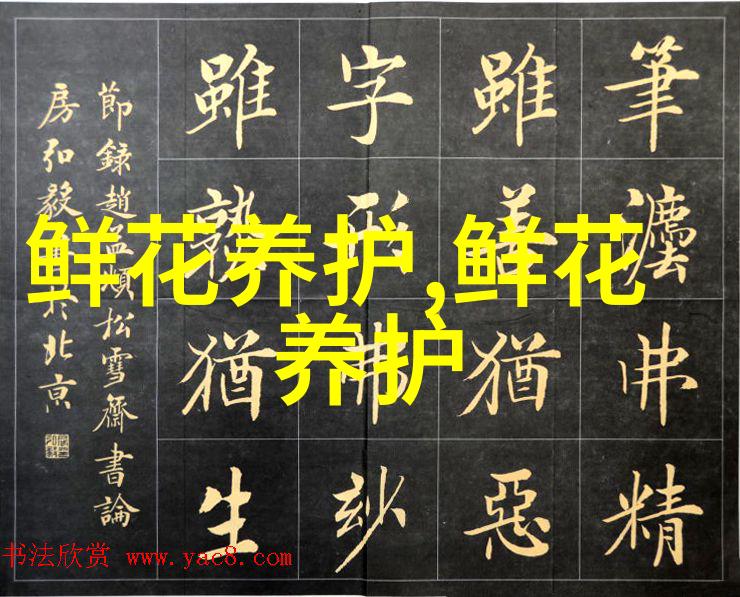 筆灋弗精
雖善猶惡
字形弗妙
雖熟猶生
節録趙孟頫松雪齋書論
房弘毅書於北京
鲜花养护,鲜花
养护
书法欣赏 www.yac8.com